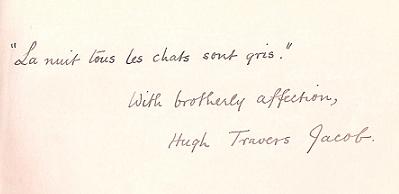 "La nuit tous les chats sont gris."
With brotherly affection,
Hugh Travers Jacob.